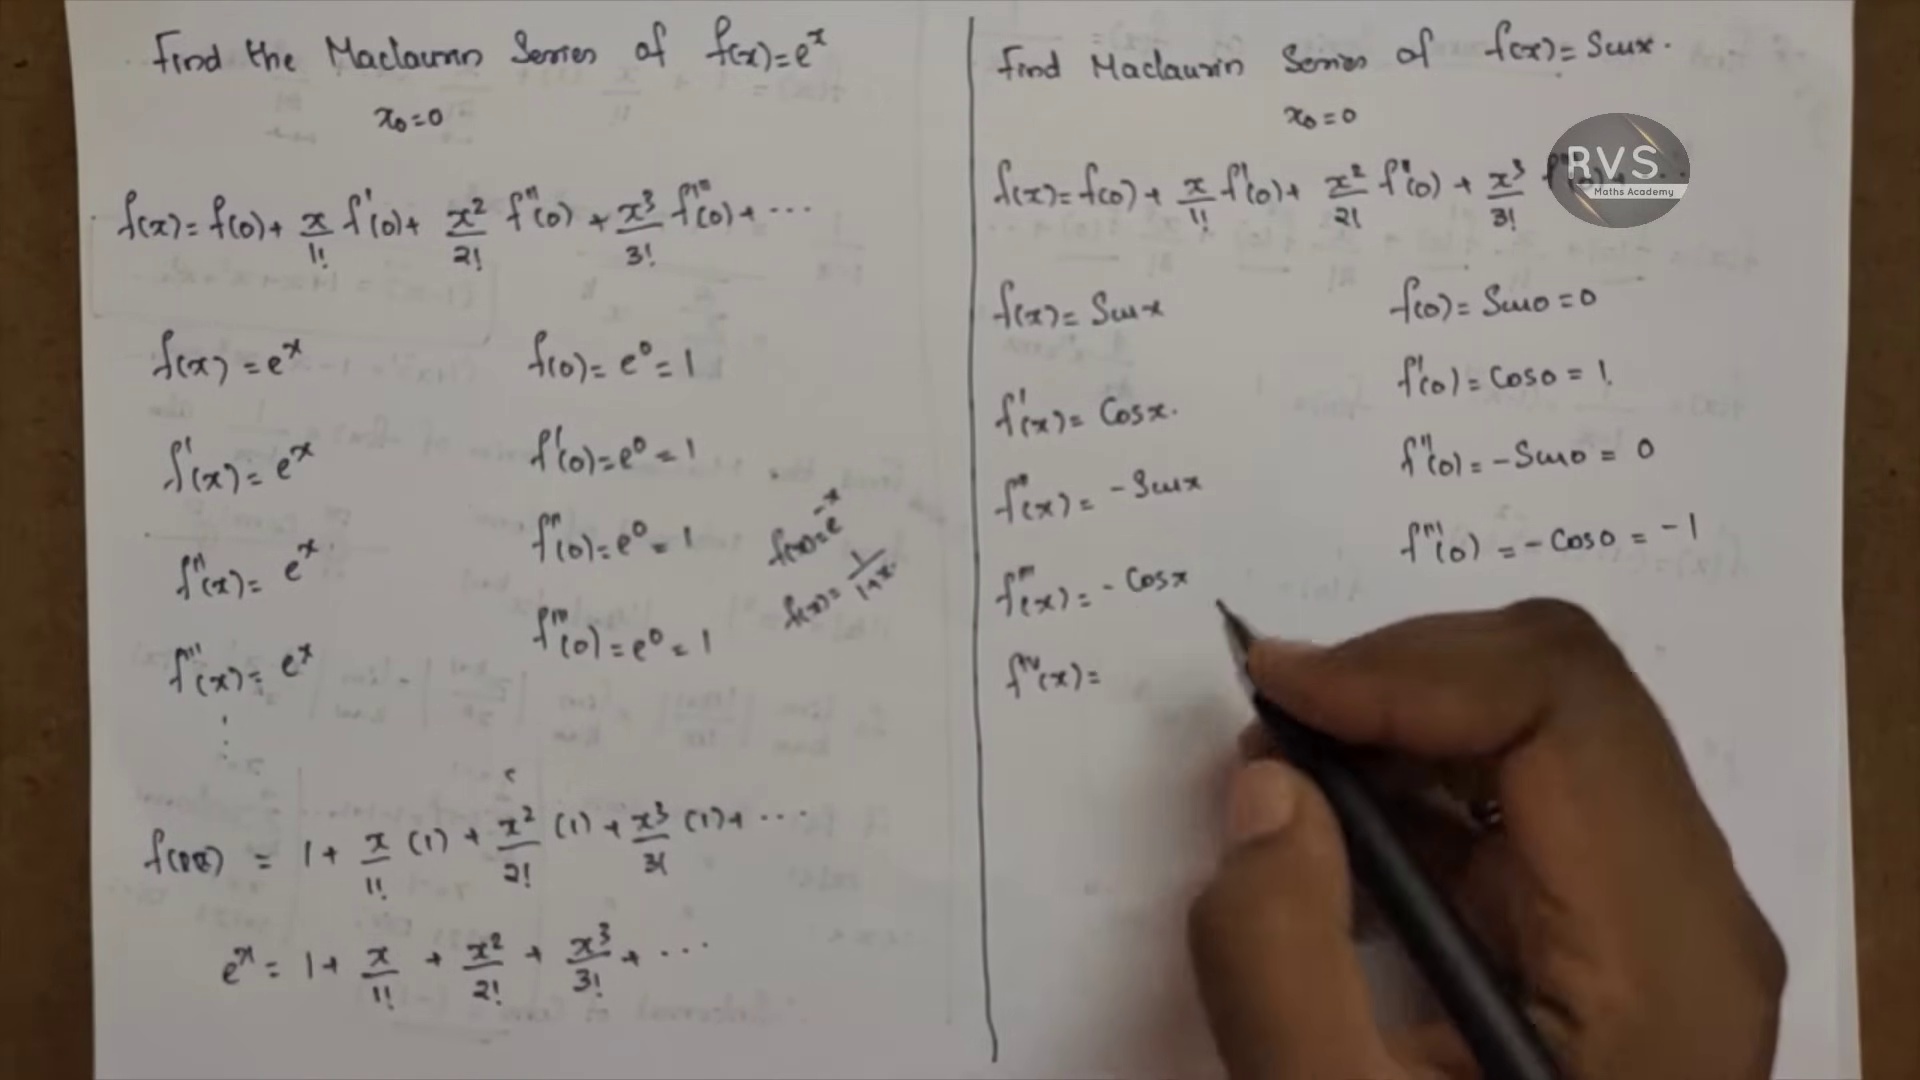 Find the Maclaurin Series of f(x)=e^x
x₀=0
f(x)= f(0)+ x/1! f'(0)+ x²/2! f''(0) + x³/3! f'''(0)+ ...
f(x) = e^x f(0)= e⁰= 1
f'(x)= e^x f'(0)=e⁰ = 1
f''(x)= e^x f''(0)=e⁰ = 1
f'''(x)= e^x f'''(0)=e⁰ = 1
f(x)=e^-x
f(x)= 1/1+x
= 1+ x/1! (1) + x²/2! (1) + x³/3! (1)+ ...
e^x = 1+ x/1! + x²/2! + x³/3! + ...
Find Maclaurin Series of f(x)= Sinx.
x₀=0
f(x)= f(0) + x/1! f'(0)+ x²/2! f''(0) + x³/3!
RVS
Maths Academy
f(x)= Sinx f(0)= Sin0=0
f'(x)= Cosx. f'(0)= Cos0 = 1.
f''(x)= -Sinx f''(0)= -Sin0= 0
f'''(x)= -Cosx f'''(0) = -Cos0 = -1
f^IV(x)=